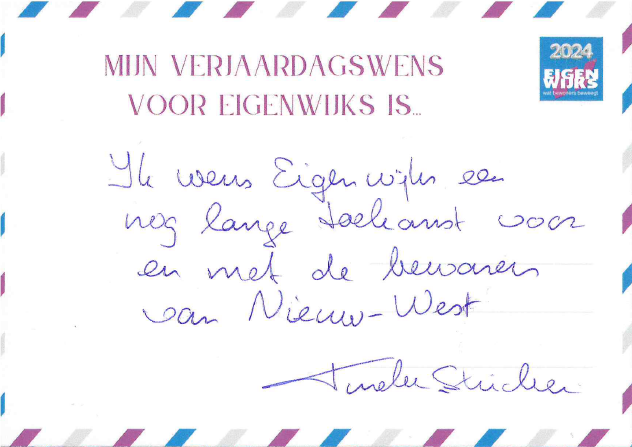 MIJN VERJAARDAGSWENS
VOOR EIGENWIJKS IS...
2024
EIGEN
WIJKS
wat bewoners beweegt
Ik wens Eigenwijks een
nog lange toekomst voor
en met de bewoners
van Nieuw-West